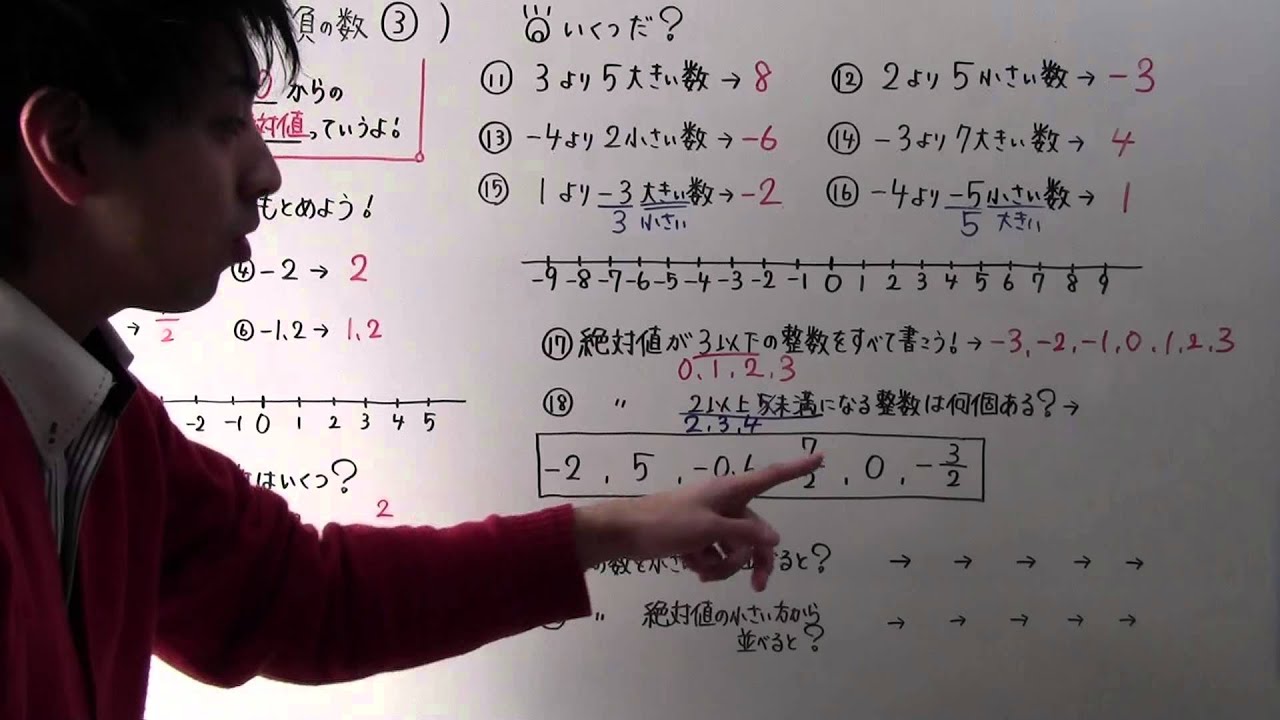 負の数 ③ )
0 からの
対値っていうよ!
もとめよう!
④ -2 → 2
→ 2
⑥ -1.2 → 1.2
-2 -1 0 1 2 3 4 5
はいくつ?
2
いくつだ?
⑪ 3より5大きい数 → 8
⑫ 2より5小さい数 → -3
⑬ -4より2小さい数 → -6
⑭ -3より7大きい数 → 4
⑮ 1より-3大きい数 → -2
3 小さい
⑯ -4より-5小さい数 → 1
5 大きい
-9 -8 -7 -6 -5 -4 -3 -2 -1 0 1 2 3 4 5 6 7 8 9
⑰ 絶対値が3以下の整数をすべて書こう! → -3, -2, -1, 0, 1, 2, 3
0, 1, 2, 3
⑱ 〃 2以上5未満になる整数は何個ある? →
2, 3, 4
-2 , 5 , -0. 7/2 , 0 , -3/2
の数を小さ ると? → → → → →
〃 絶対値の小さい方から → → → → →
並べると?